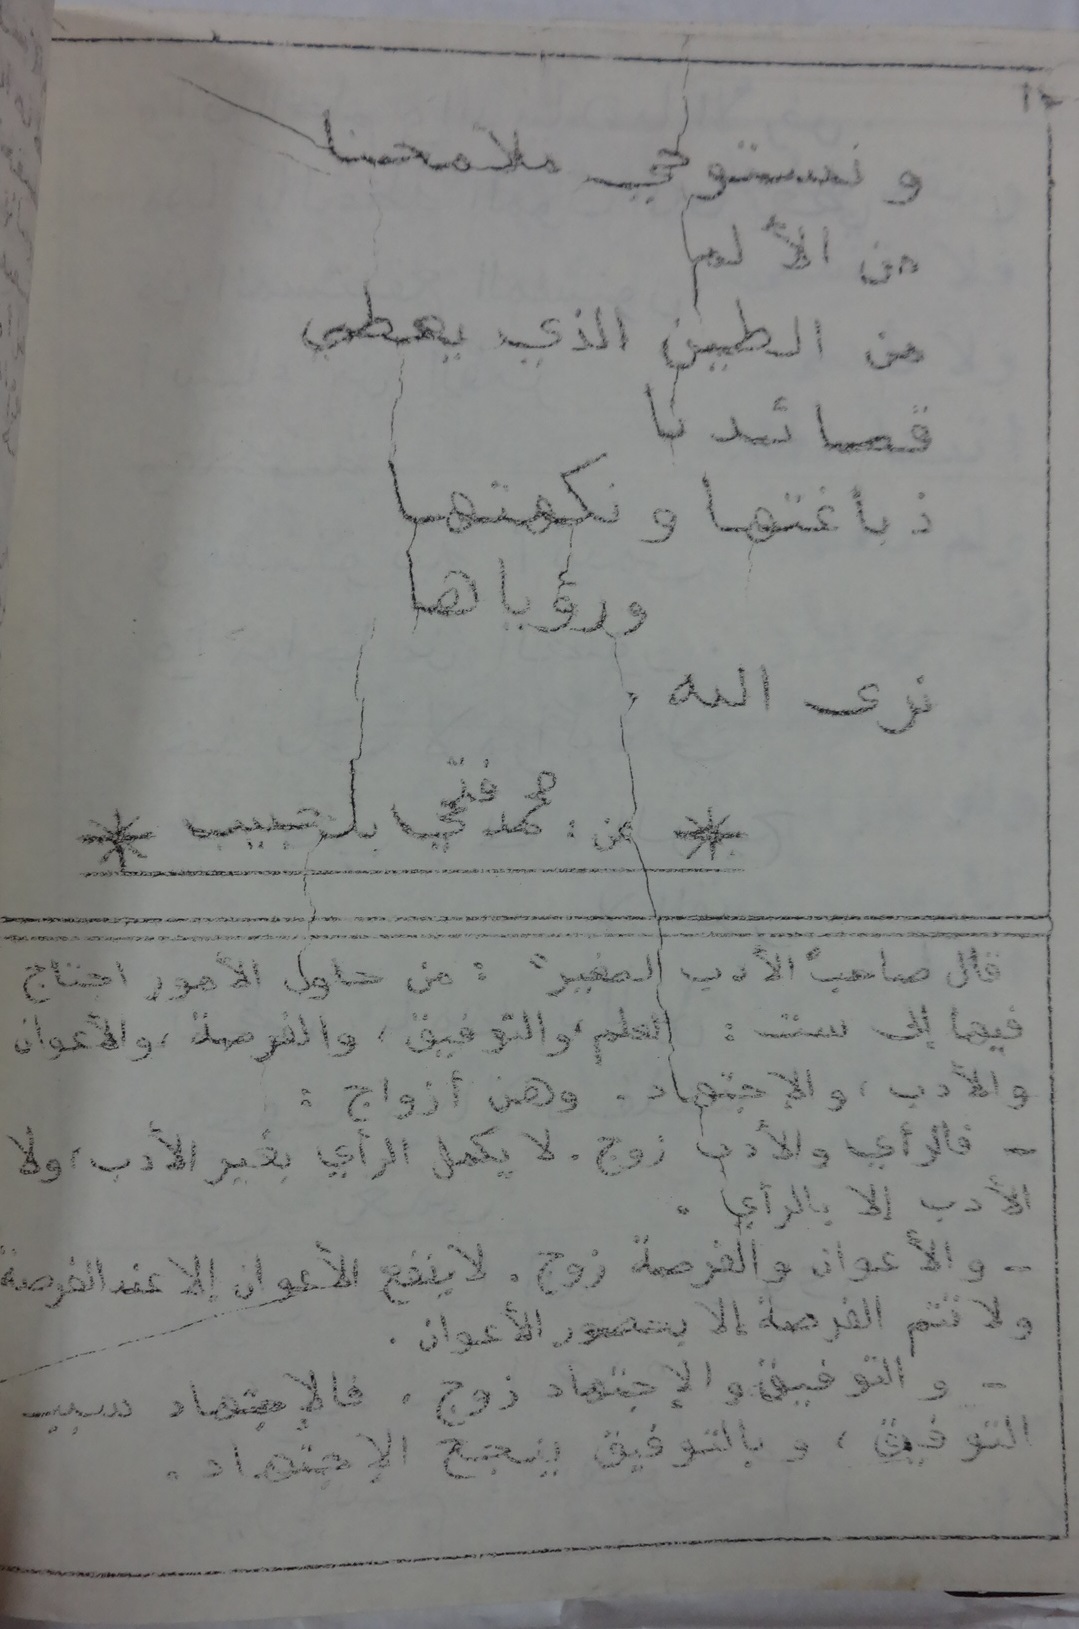 و نستوحي ملامحنا
من الألم
من الطين الذي يعطي
قصائدنا
دباغتها و نكهتها
ورؤياها
نرى الله .
* من : محمد فتحي بلحبيب *
قال صاحب "الأدب الصغير" : من حاول الأمور احتاج
فيها إلى ست : العلم ، والتوفيق ، والفرصة ، والأعوان
والأدب ، والإجتهاد . وهن أزواج :
- فالرأي والأدب زوج . لا يكمل الرأي بغير الأدب ، ولا
الأدب إلا بالرأي .
- والأعوان والفرصة زوج . لاينفع الأعوان إلا عند الفرصة
ولا تتم الفرصة إلا بحضور الأعوان .
- و التوفيق و الإجتهاد زوج . فالإجتهاد سبب
التوفيق ، و بالتوفيق ينجح الإجتهاد .